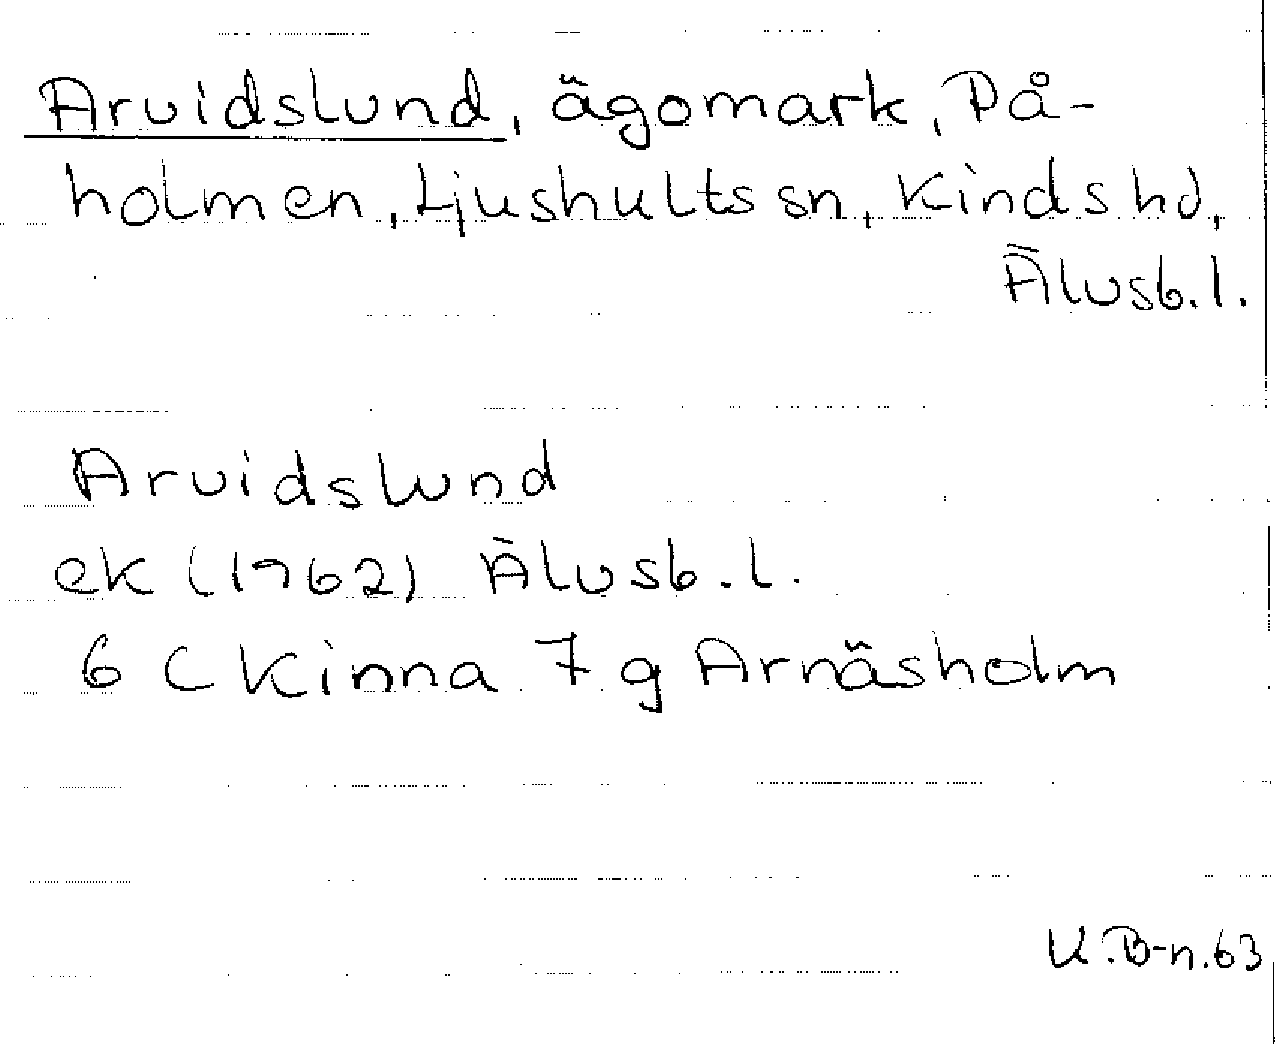 Arvidslund, ägomark, På-
holmen, Ljushults sn, Kinds hd,
Älvsb. l.
Arvidslund
ek (1762) Älvsb. l.
6 C Kinna 7 g Arnäsholm
K. B-n. 63